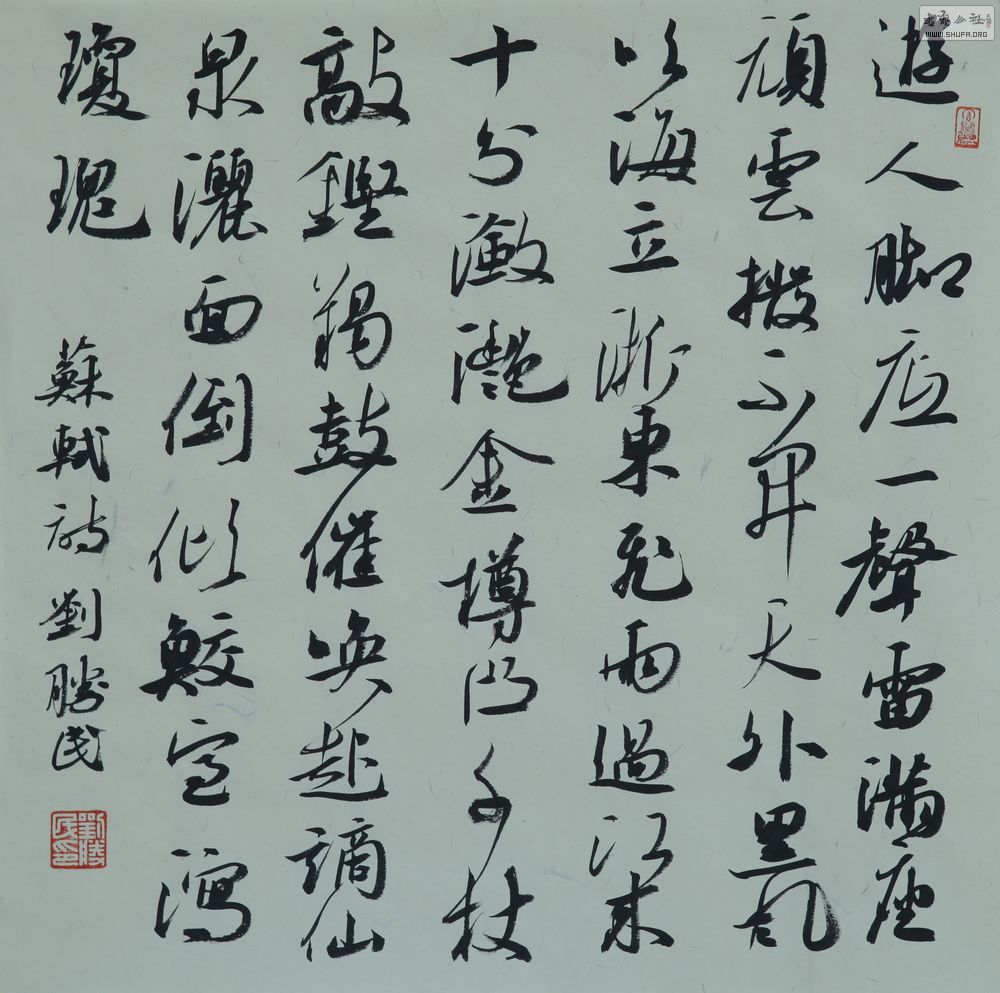 遊人脚底一聲雷滿座
頑雲撥不開天外黑風
吹海立浙東飛雨過江来
十分瀲灧金樽凸千杖
敲鏗羯鼓催喚起謫仙
泉灑面倒傾鮫室瀉
瓊瑰
蘇軾詩 劉勝民
劉勝民印
WWW.SHUFA.ORG